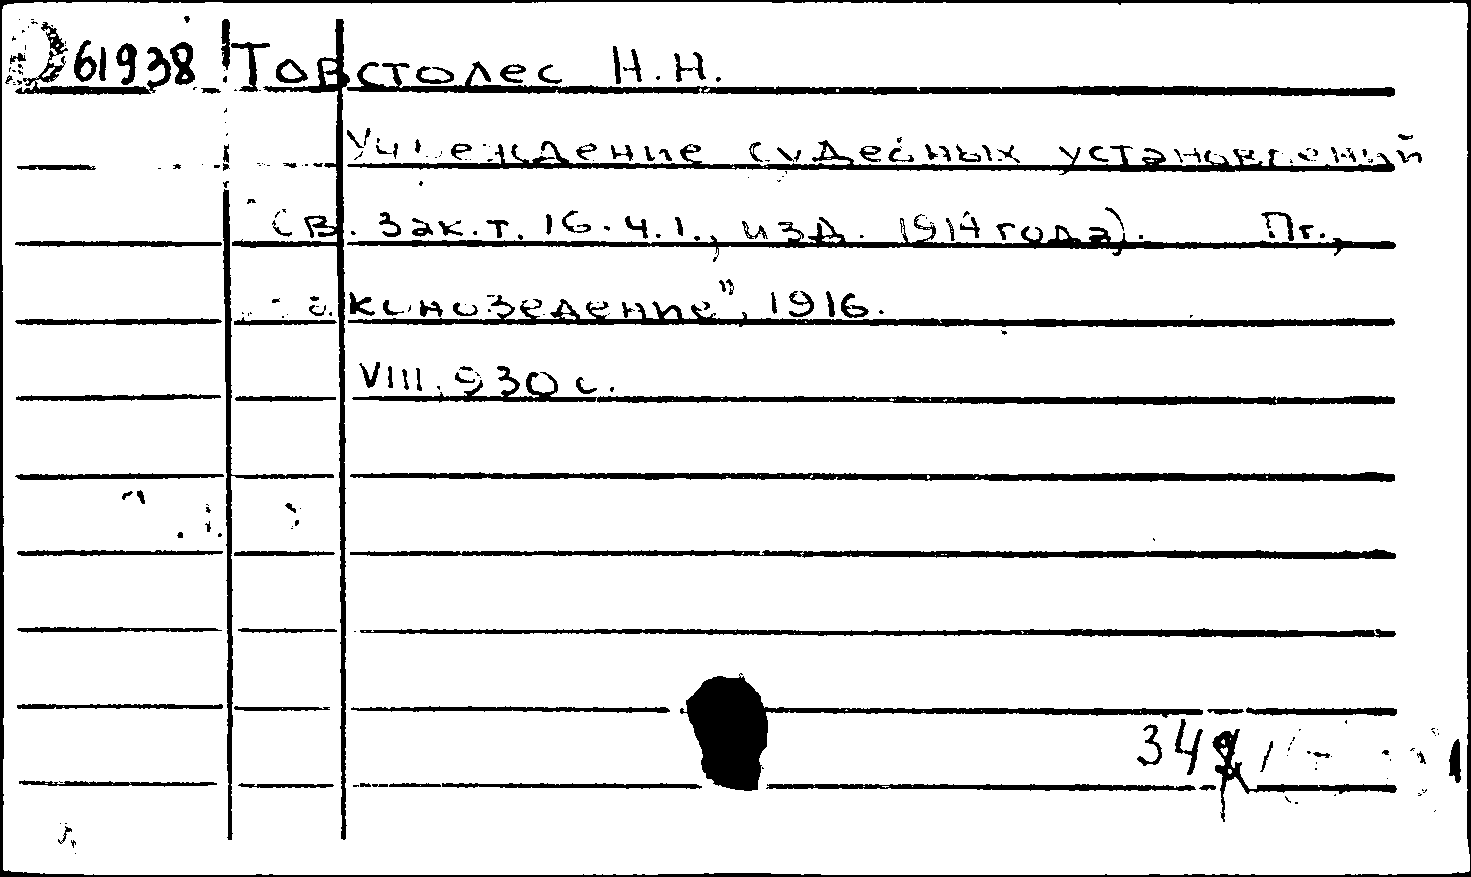 D 61938 Товстолес Н.Н.
Учреждение судебных установлений
(Св. Зак. т. 16. ч. 1., изд. 1914 года). Пг.,
"Законоведение", 1916.
VIII, 930 с.
34